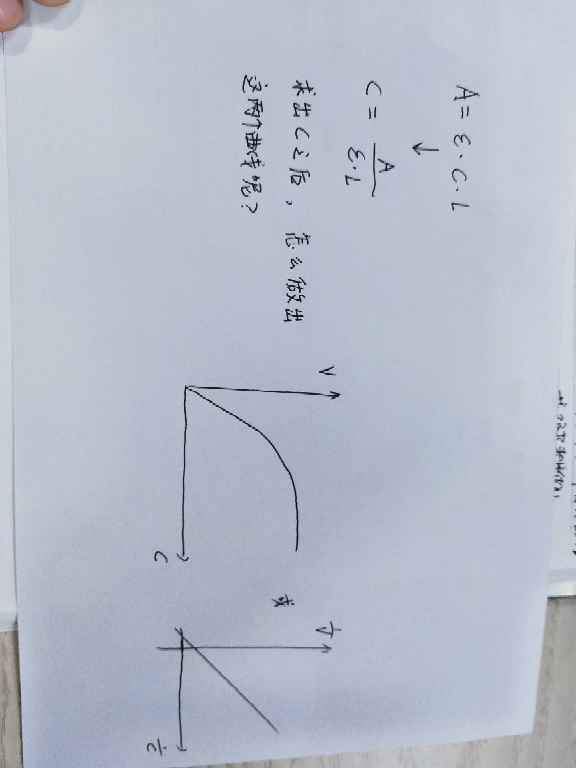 A = ε·C·L
↓
C = A / ε·L
求出C之后，怎么做出
这两个曲线呢？
V
C
或
1/V
1/C